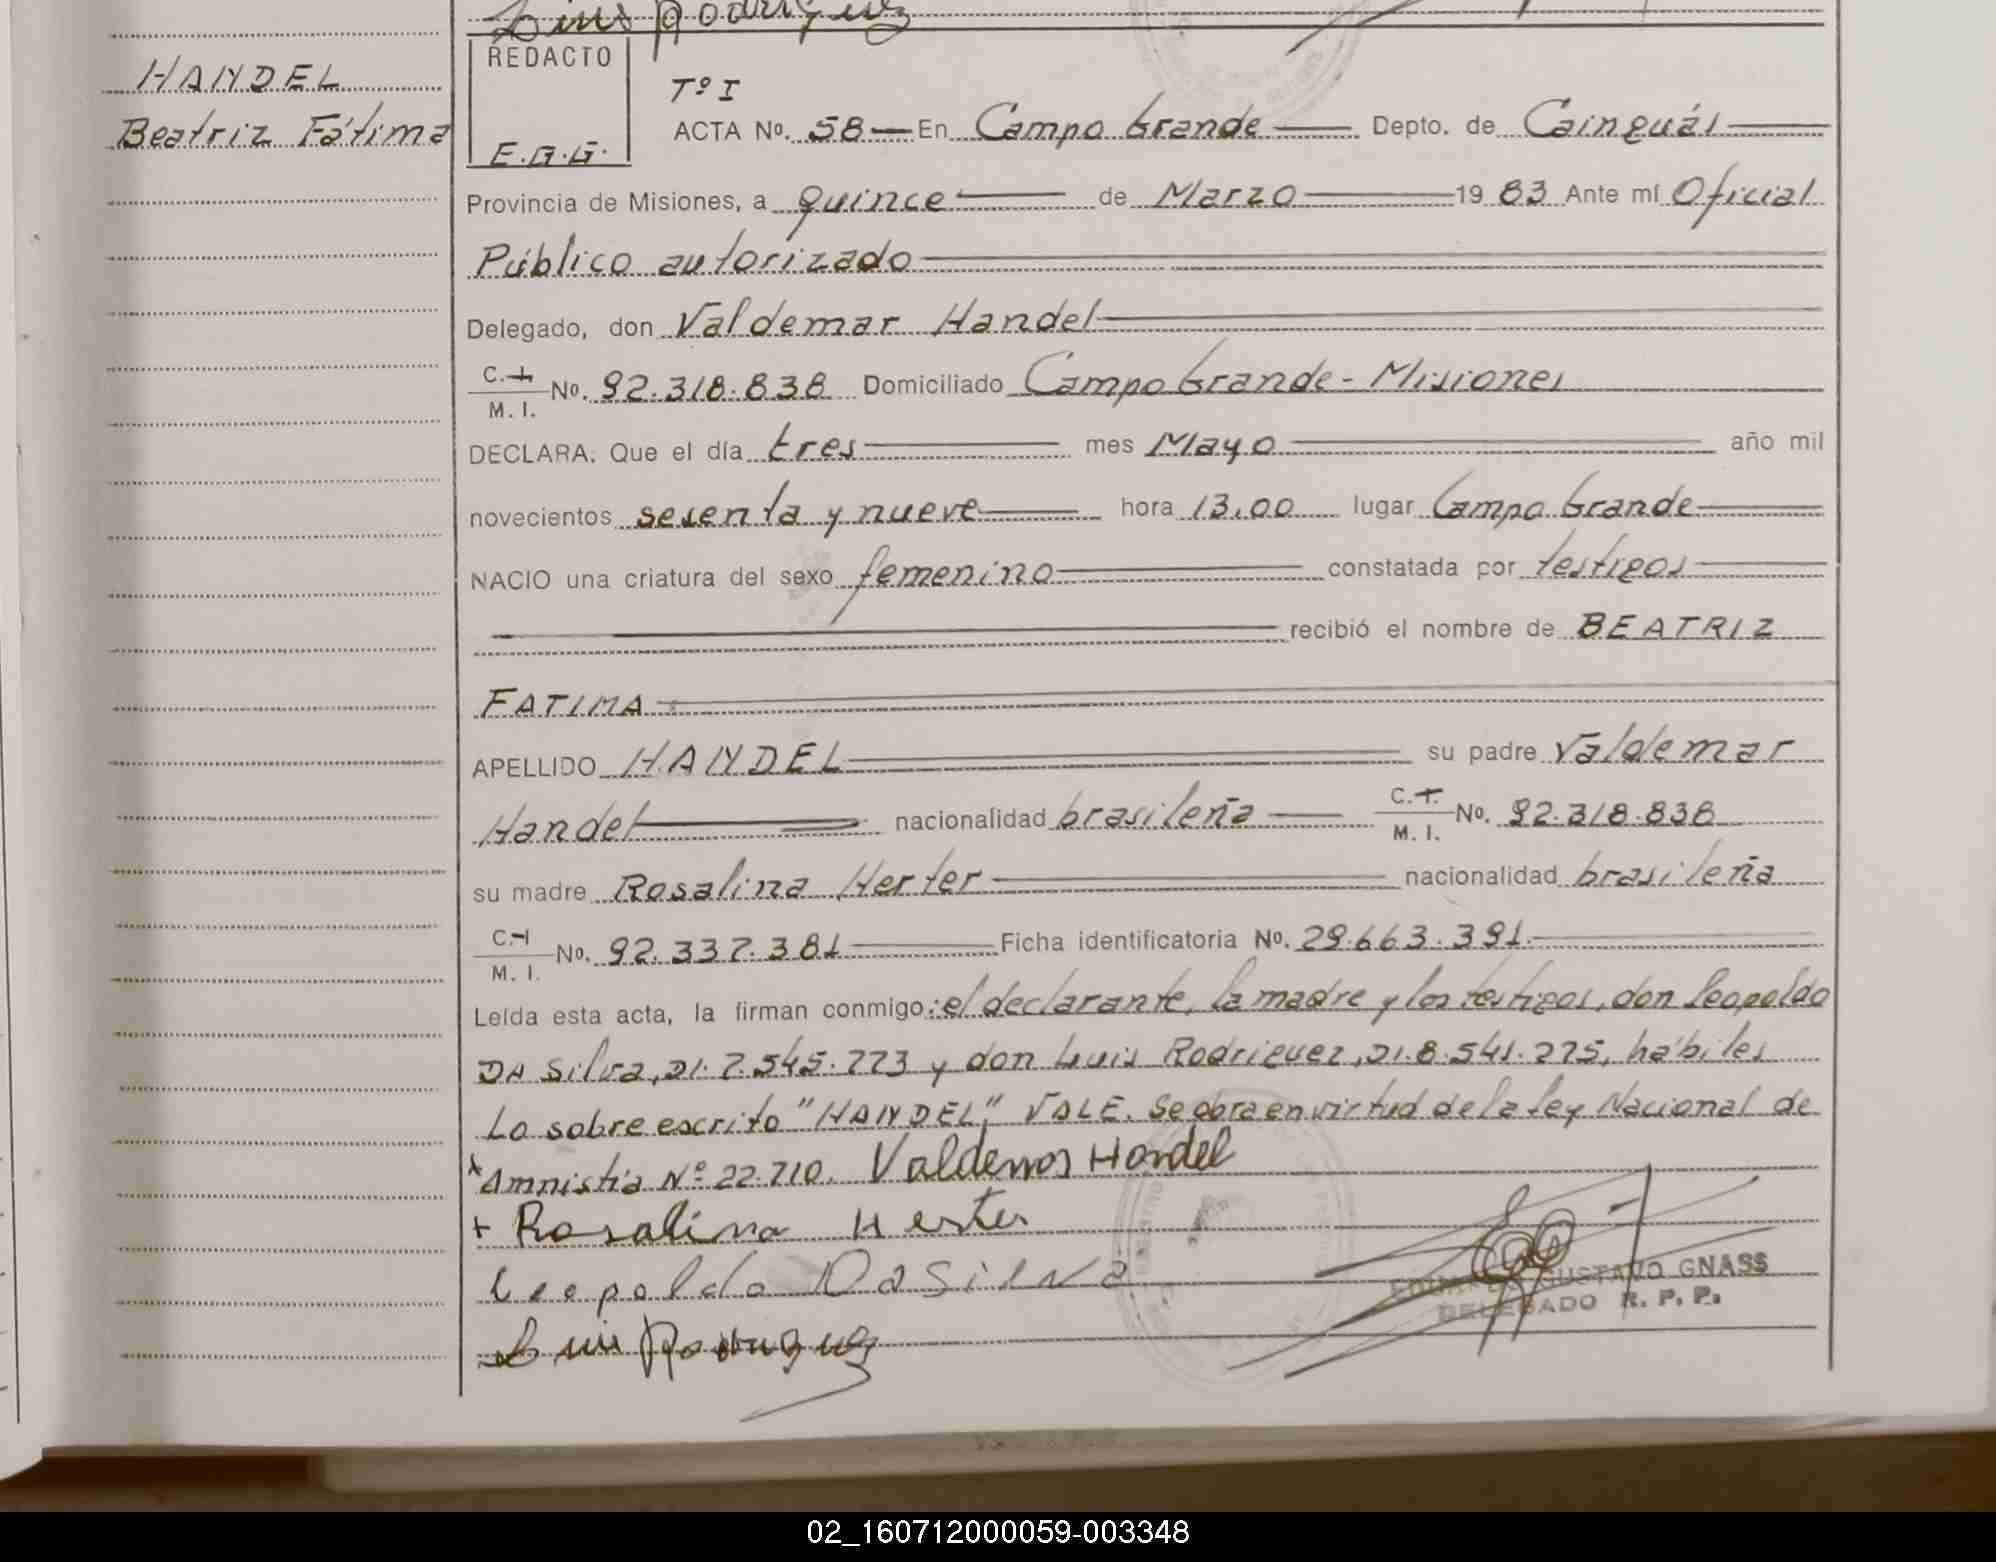 Luis Rodriguez
HANDEL
Beatriz Fátima
REDACTO
E.G.G.
Tº I
ACTA Nº. 58 En Campo Grande Depto. de Cainguás
Provincia de Misiones, a quince de Marzo 1983 Ante mí Oficial
Público autorizado
Delegado, don Valdemar Handel
C. I. M. I. Nº. 92.318.838 Domiciliado Campo Grande - Misiones
DECLARA: Que el día tres mes Mayo año mil
novecientos sesenta y nueve hora 13,00 lugar Campo Grande
NACIO una criatura del sexo femenino constatada por testigos
recibió el nombre de BEATRIZ
FATIMA
APELLIDO HANDEL su padre Valdemar
Handel nacionalidad brasileña C. I. M. I. Nº. 92.318.838
su madre Rosalina Herter nacionalidad brasileña
C. I. M. I. Nº. 92.337.381 Ficha identificatoria Nº. 29.663.391.
Leída esta acta, la firman conmigo: el declarante, la madre y los testigos, don Leopoldo
DA Silva, DI. 7.545.773 y don Luis Rodriguez, DI. 8.541.275, hábiles
Lo sobre escrito "HANDEL", VALE. Se obra en virtud de la Ley Nacional de
Amnistía Nº 22.710. Valdemar Handel
+ Rosalina Herter
Leopoldo Da Silva
Luis Rodriguez
GUSTAVO GNASS
DELEGADO R. P. P.
02_160712000059-003348